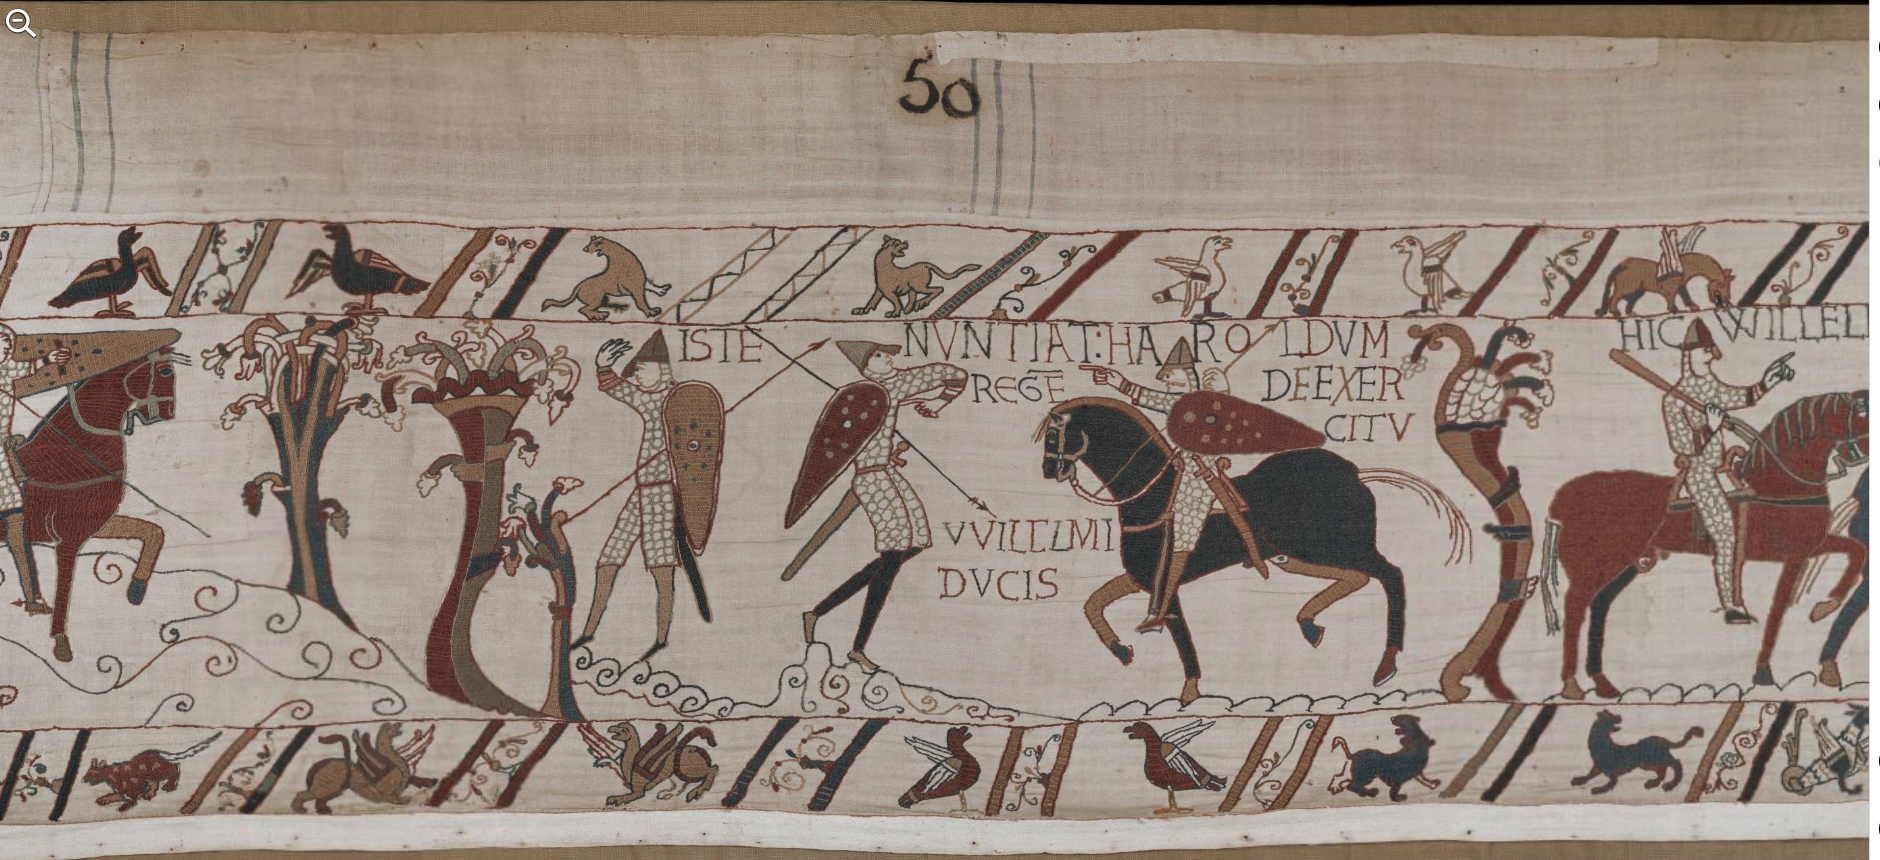 50
ISTE NVNTIAT: HAROLDVM
REGĒ DEEXER
CITV
VVILLELMI
DVCIS
HIC WILLEL